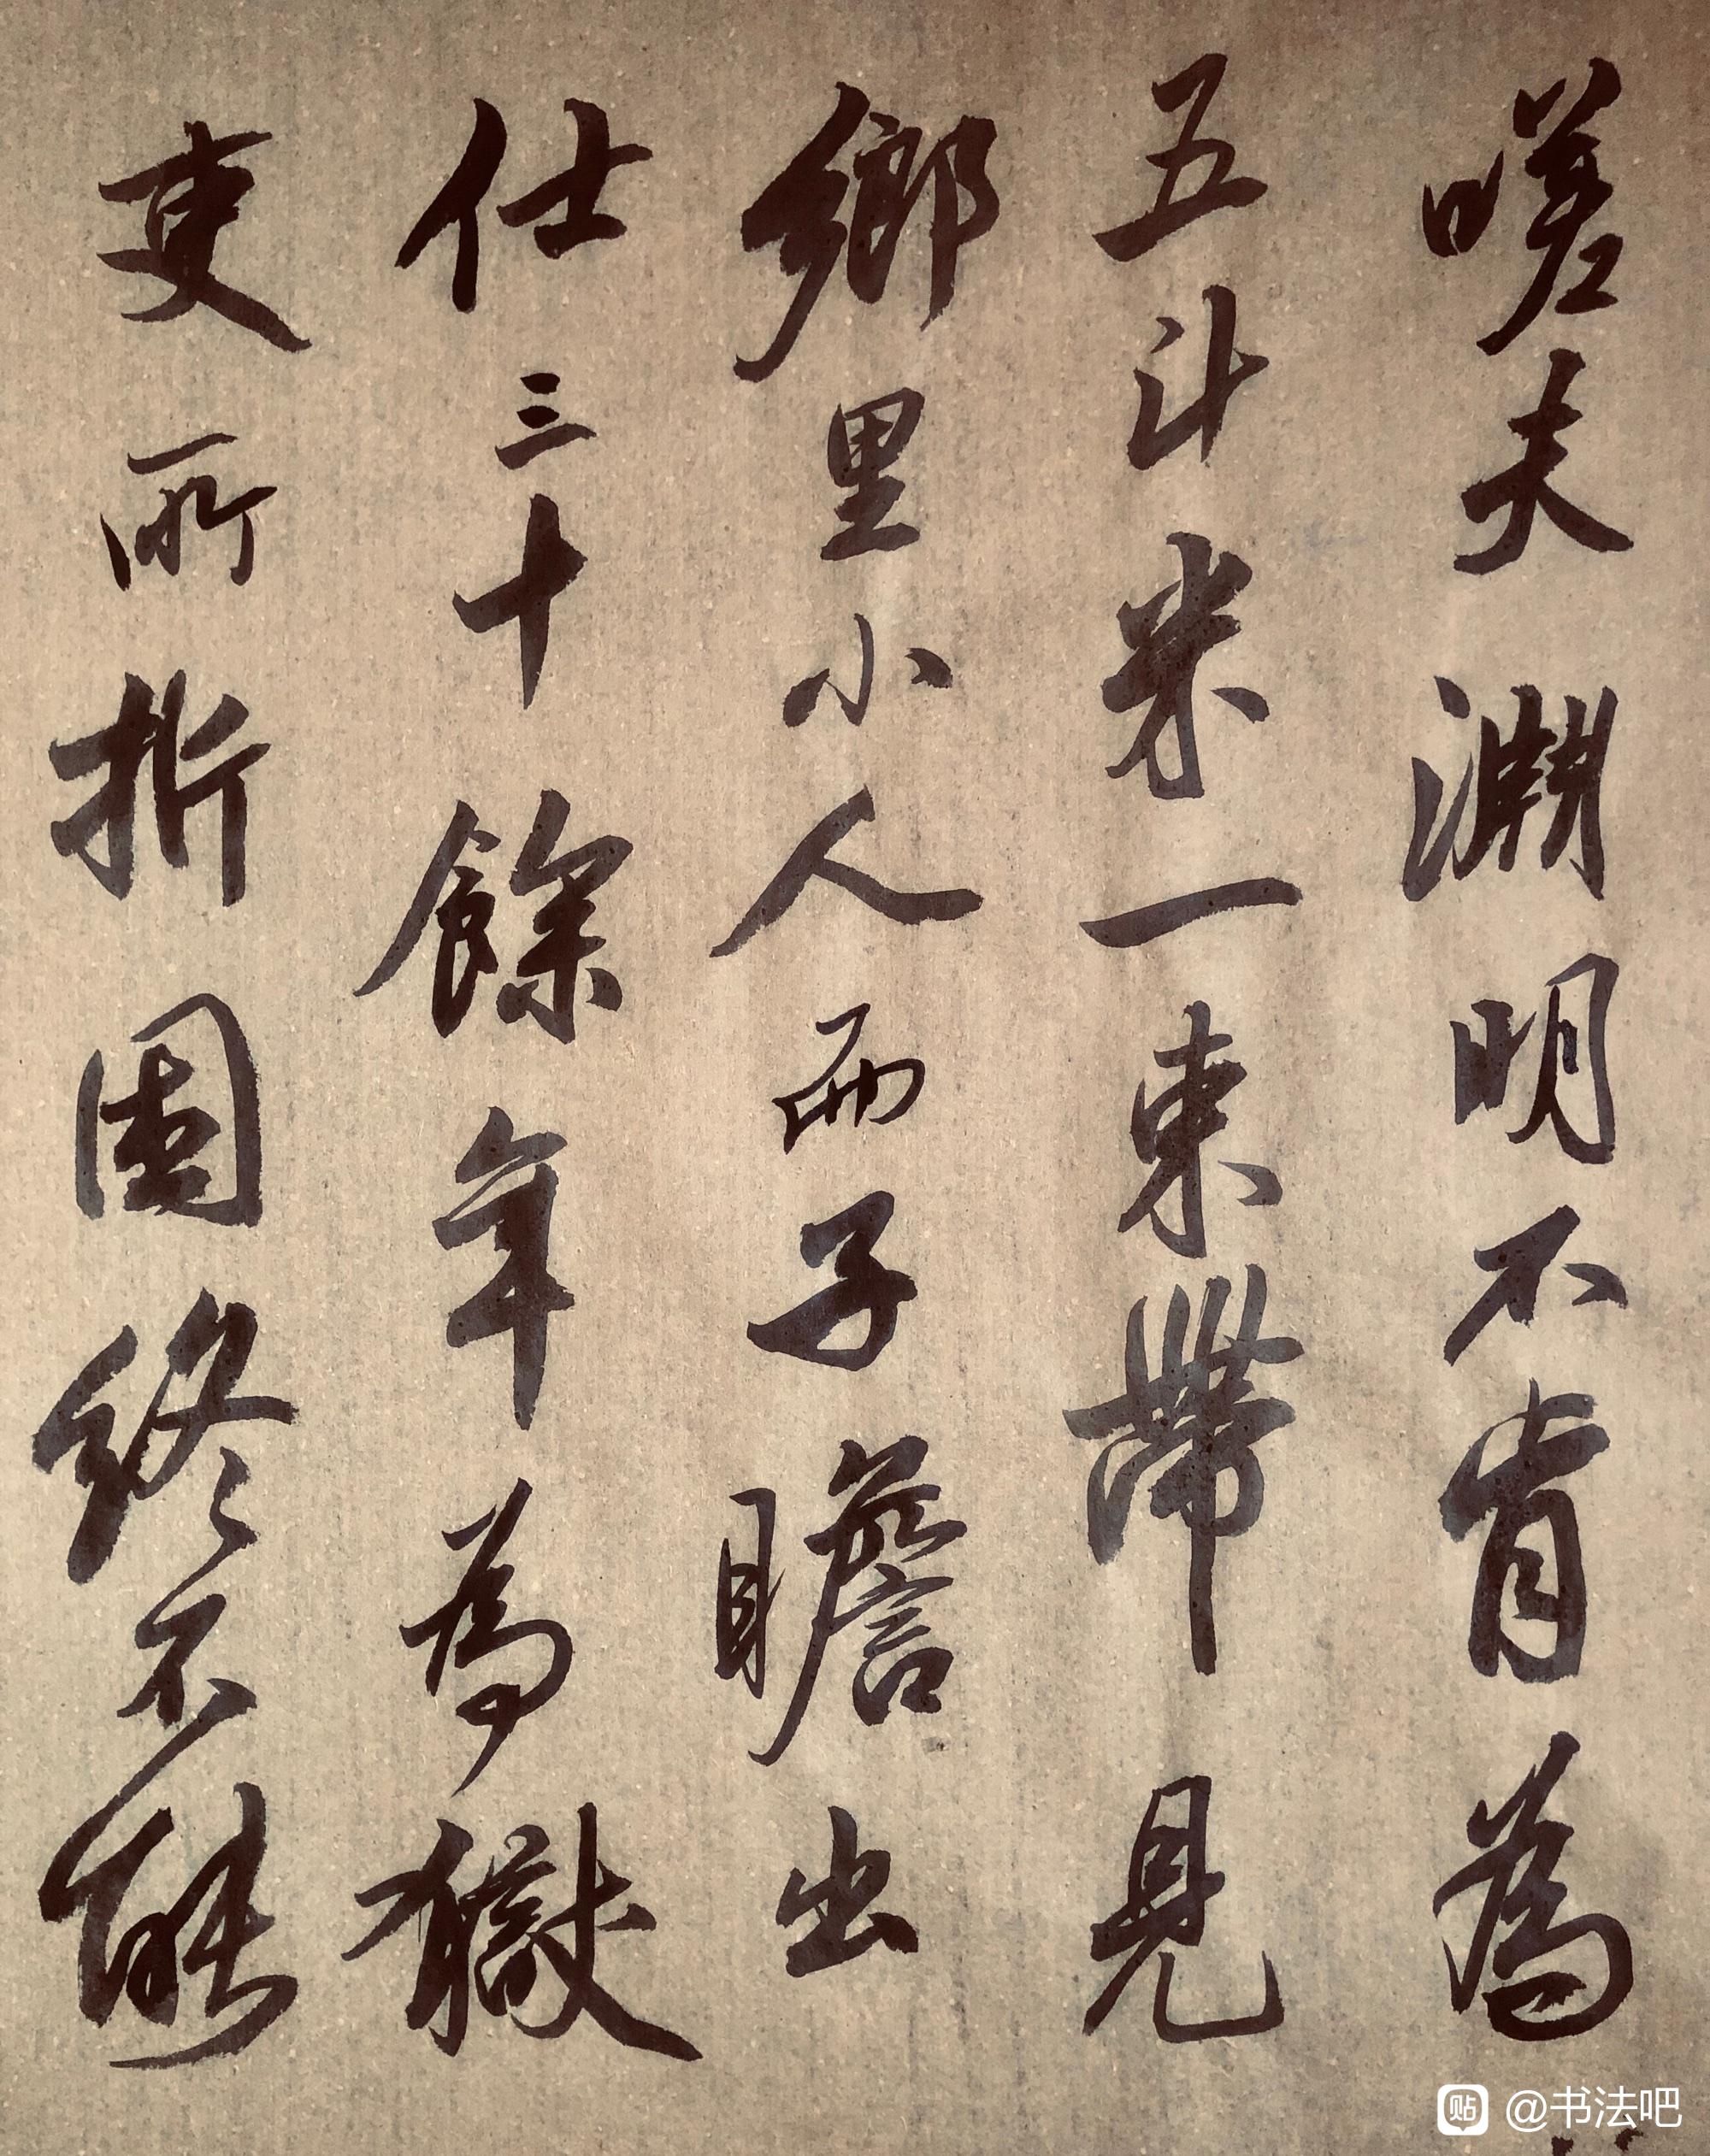 嗟夫淵明不肯為
五斗米一束帶見
鄉里小人而子瞻出
仕三十餘年為獄
吏所折困終不能
贴 @书法吧